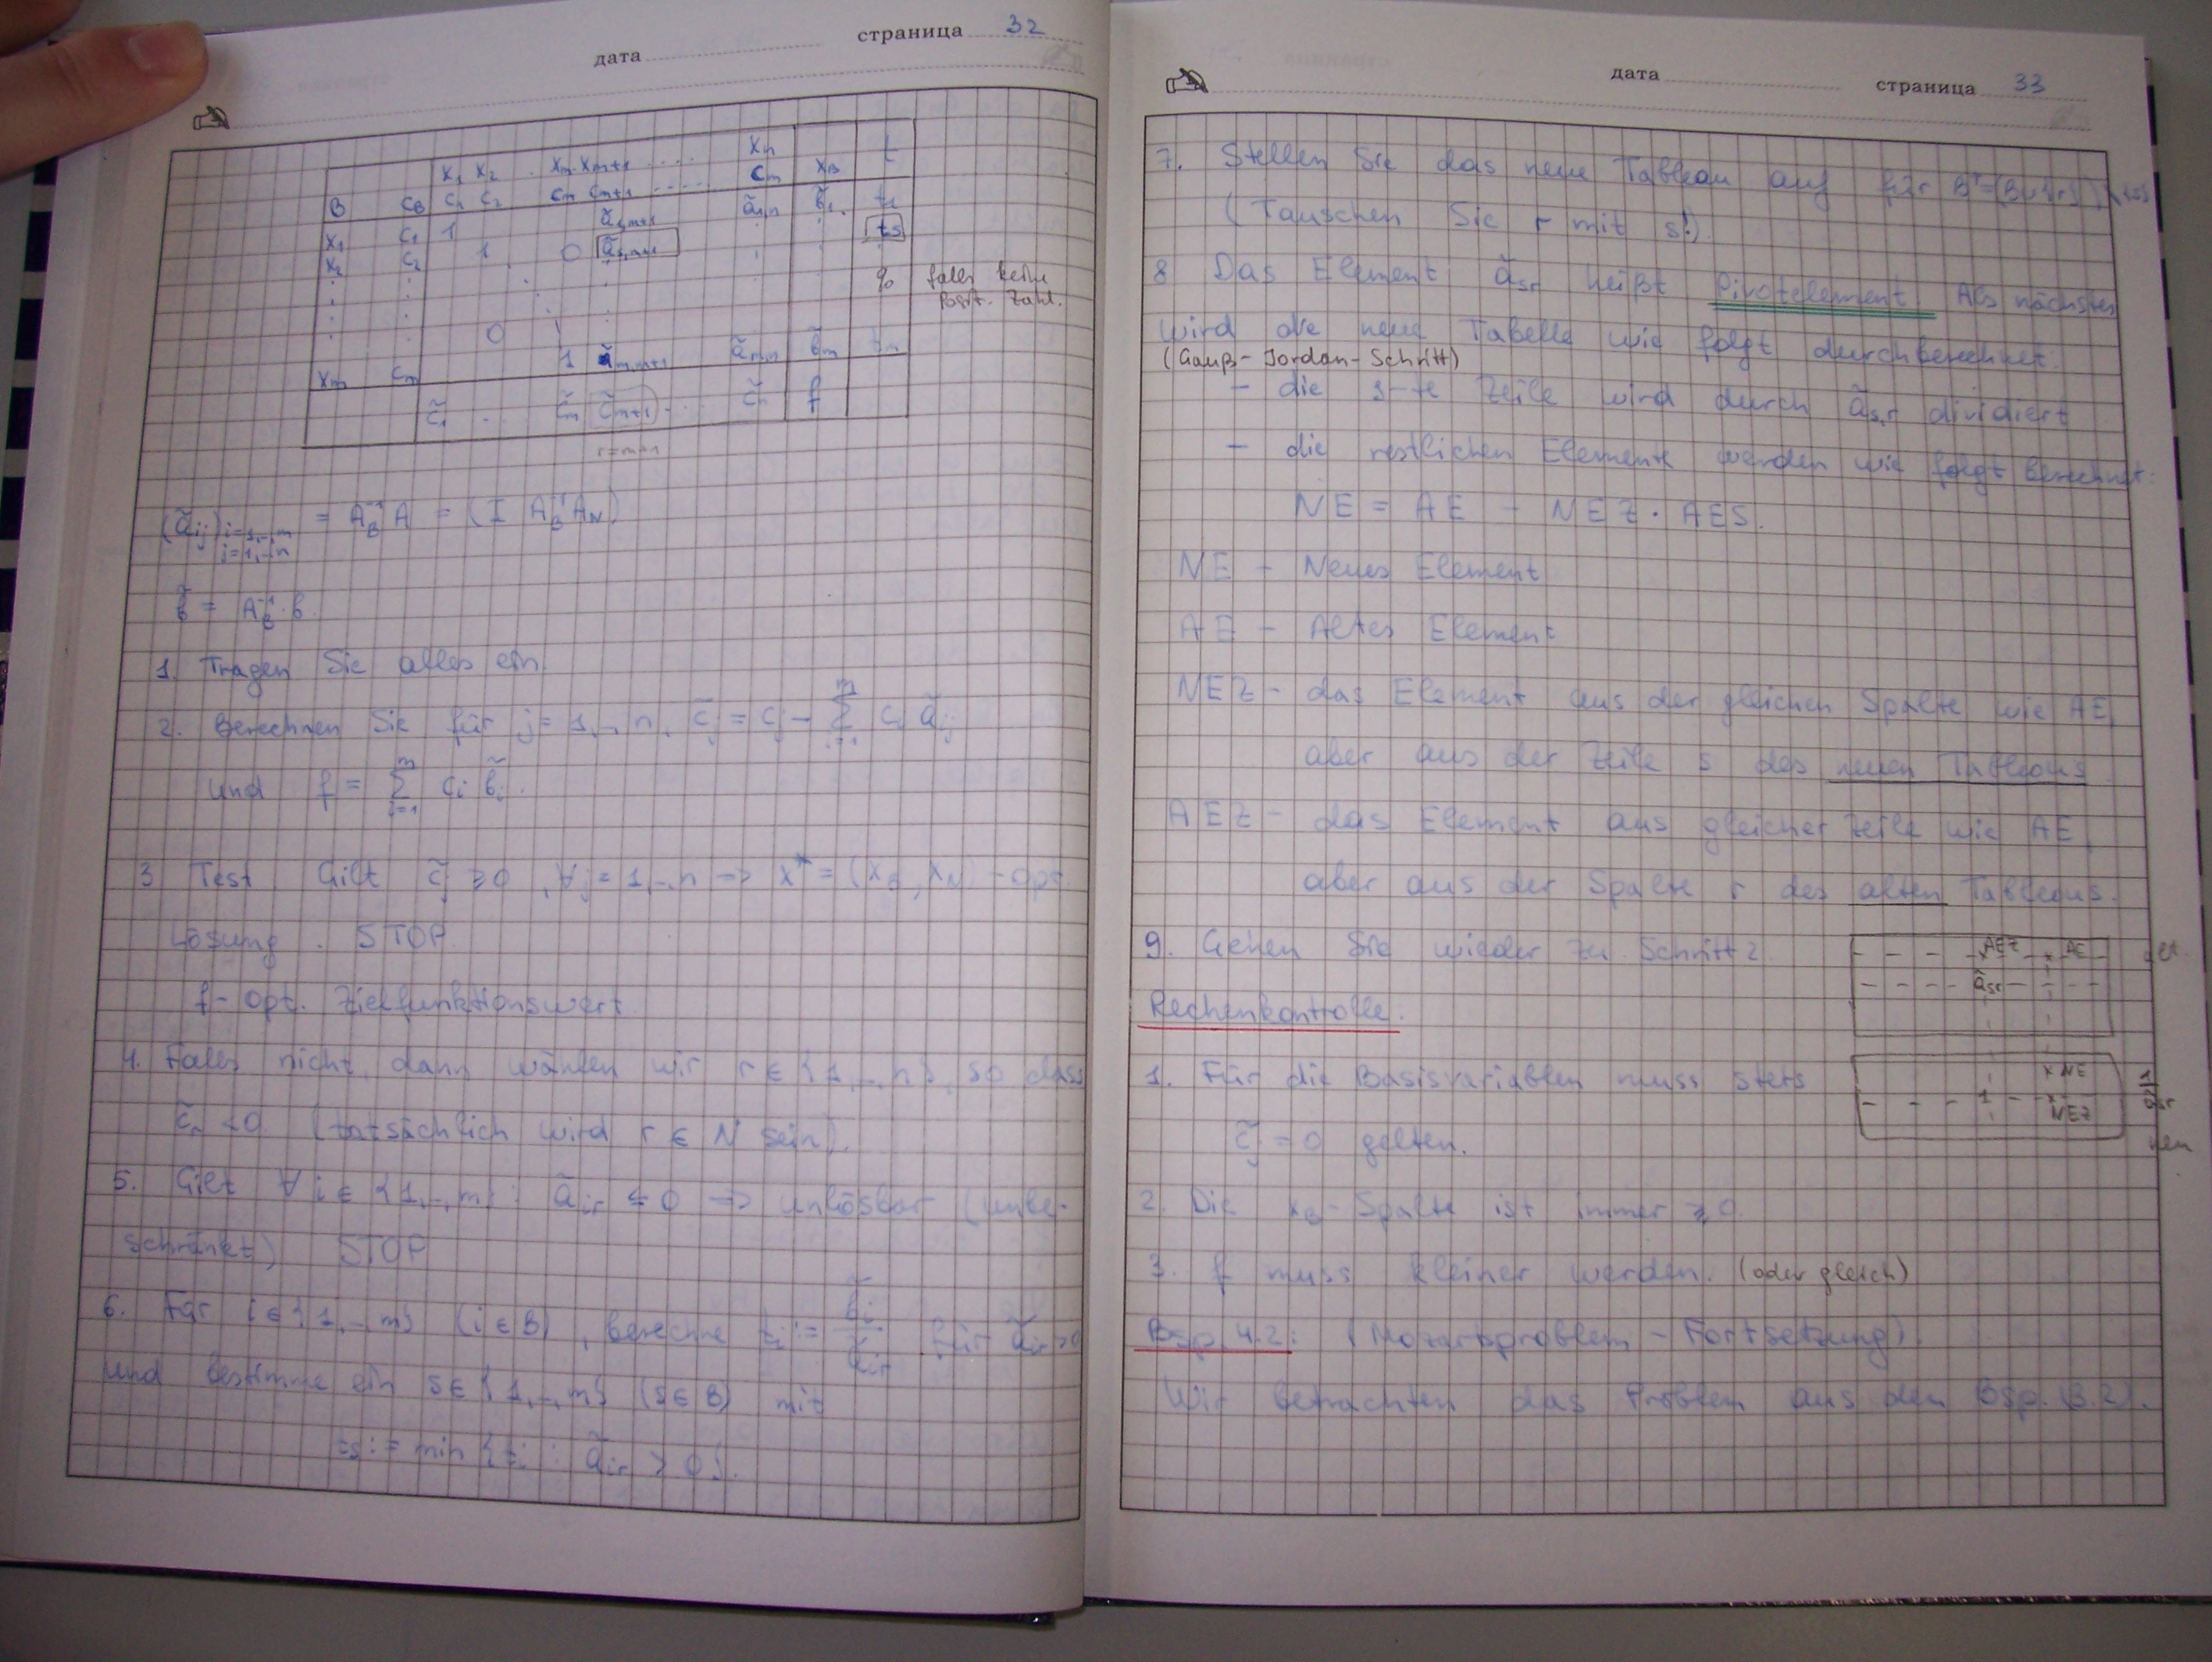 дата страница 32
x₁ x₂ . xₘ xₘ₊₁ .... xₙ t
B c_B c₁ c₂ cₘ cₘ₊₁ ..... cₘ x_B
x₁ c₁ 1 ã₁,ₘ₊₁ ã₁,ₙ b̃₁ t₁
x₂ c₂ 1 0 ãₛ,ₘ₊₁ tₛ
% falls keine
posit. Zahl.
0
xₘ cₘ 1 ãₘ,ₘ₊₁ ãₘ,ₙ b̃ₘ tₘ
c̃₁ .. c̃ₘ c̃ₘ₊₁ .. c̃ₙ f
r=m+1
(ãᵢⱼ)i=1,..,m j=1,..,n = A_B⁻¹A = (I A_B⁻¹A_N)
b̃ = A_B⁻¹·b.
1. Tragen Sie alles ein.
2. Berechnen Sie für j=1,..,n, c̃ⱼ = cⱼ - Σᵢ₌₁ᵐ cᵢ ãᵢⱼ
und f = Σᵢ₌₁ᵐ cᵢ b̃ᵢ.
3 Test Gilt c̃ⱼ ≥ 0, ∀j=1,..,n => x* = (x_B, x_N) - opt.
Lösung. STOP
f - opt. Zielfunktionswert.
4. Falls nicht, dann wählen wir r ∈ {1,..,n}, so dass
c̃ᵣ < 0. (tatsächlich wird r ∈ N sein).
5. Gilt ∀ i ∈ {1,..,m}: ãᵢᵣ ≤ 0 => unlösbar (unbe-
schränkt) STOP
6. Für i ∈ {1,..,m} (i ∈ B), berechne tᵢ := b̃ᵢ/ãᵢᵣ für ãᵢᵣ > 0
und bestimme ein s ∈ {1,..,m} (s ∈ B) mit
tₛ := min {tᵢ : ãᵢᵣ > 0}.
дата страница 33
7. Stellen Sie das neue Tableau auf für B⁺=(B∪{r})\{s}
(Tauschen Sie r mit s!)
8 Das Element ãₛᵣ heißt Pivotelement. Als nächstes
wird die neue Tabelle wie folgt durchberechnet.
(Gauß-Jordan-Schritt)
- die s-te Zeile wird durch ãₛ,ᵣ dividiert
- die restlichen Elemente werden wie folgt berechnet:
NE = AE - NEZ · AES.
NE - Neues Element
AE - Altes Element
NEZ - das Element aus der gleichen Spalte wie AE,
aber aus der Zeile s des neuen Tableaus
AEZ - das Element aus gleicher Zeile wie AE,
aber aus der Spalte r des alten Tableaus.
9. Gehen Sie wieder zu Schritt 2.
AEZ AE alt
ãₛᵣ
Rechenkontrolle.
1. Für die Basisvariablen muss stets
x NE
1 NEZ 1/ãₛᵣ
neu
c̃ⱼ = 0 gelten.
2. Die x_B-Spalte ist immer ≥ 0.
3. f muss kleiner werden. (oder gleich)
Bsp. 4.2: (Mozartproblem - Fortsetzung).
Wir betrachten das Problem aus dem Bsp. (3.2).